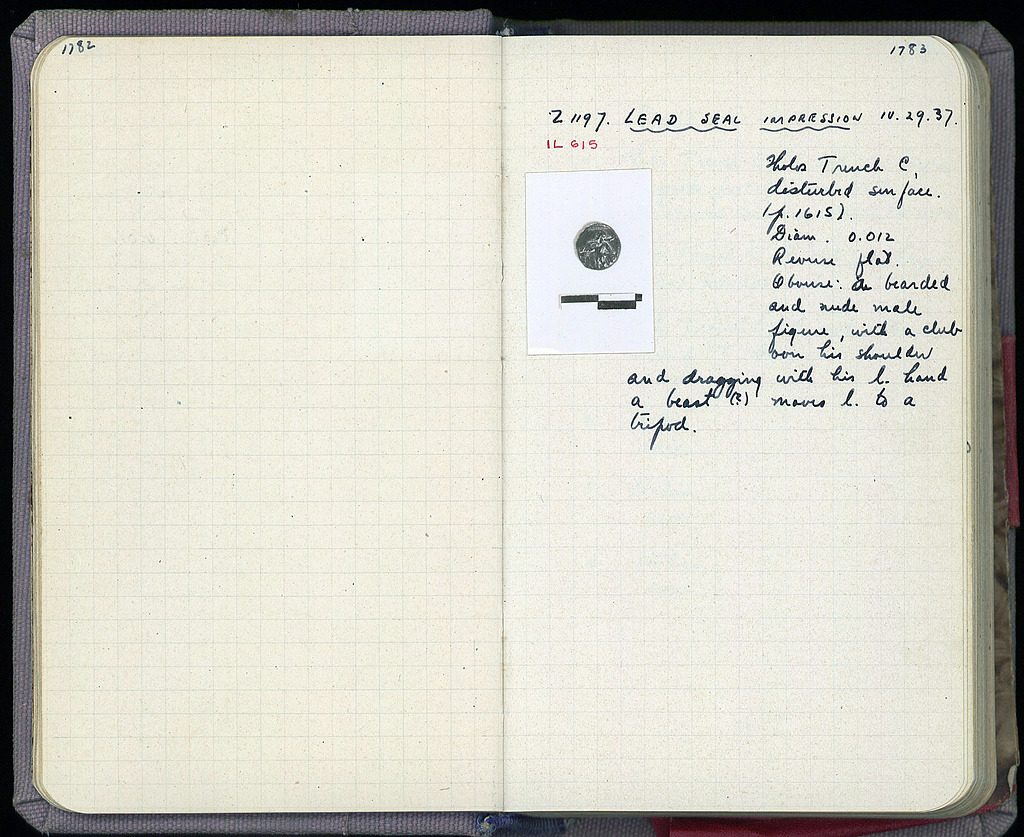 1782
1783
Σ 1197. LEAD SEAL IMPRESSION IV. 29. 37.
IL 615
Tholos Trench C,
disturbed surface.
(p. 1615).
Diam. 0.012
Reverse flat.
Obverse: a bearded
and nude male
figure, with a club
over his shoulder
and dragging with his l. hand
a beast (?) moves l. to a
tripod.